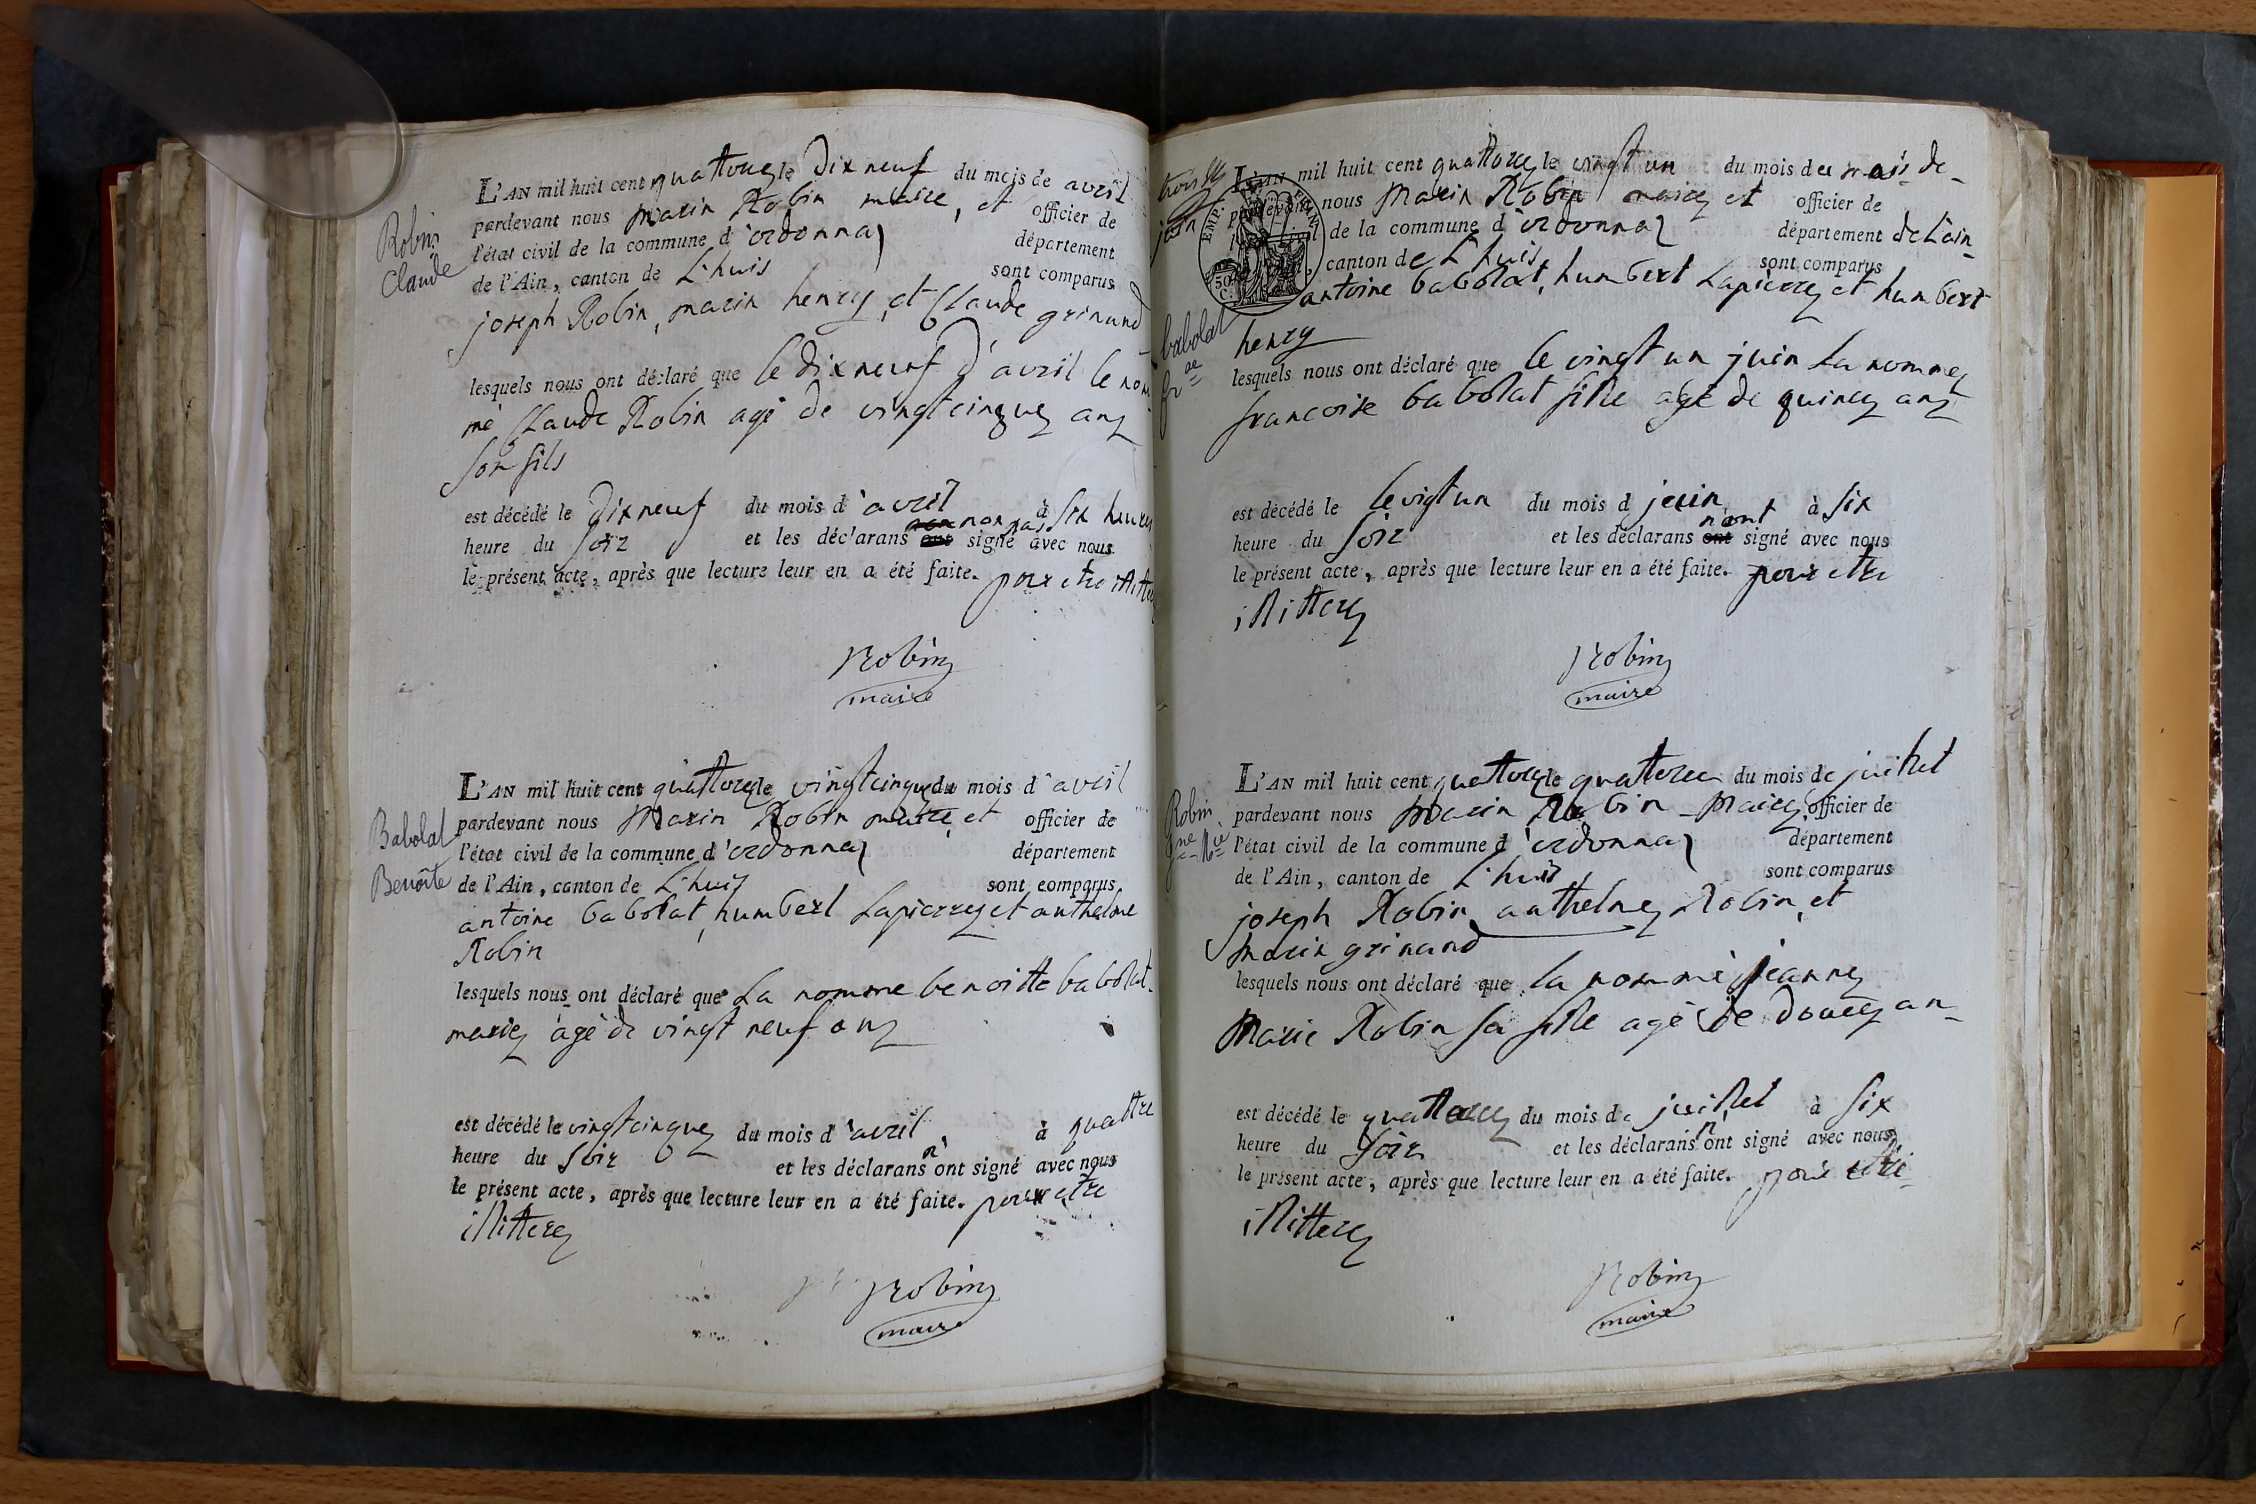 Robin
Claude
L'AN mil huit cent quattorze le dixneuf du mois de avril
pardevant nous marin Robin maire, et officier de
l'état civil de la commune d'ordonnaz département
de l'Ain, canton de L'huis sont comparus
joseph Robin, marin henry, et Claude grinand
lesquels nous ont déclaré que le dixneuf d'avril le nom
mé Claude Robin agé de vingtcinque anz
son fils
est décédé le dixneuf du mois d'avril à six heures
heure du soir et les déclarans non pas signé avec nous
le présent acte, après que lecture leur en a été faite. pour etre
Robin
maire
Babolat
Benoîte
L'AN mil huit cent quattorze le vingtcinque du mois d'avril
pardevant nous Marin Robin maire, et officier de
l'état civil de la commune d'ordonnaz département
de l'Ain, canton de L'huis sont comparus
antoine babolat, humbert Lapierre, et anthelme
Robin
lesquels nous ont déclaré que La nomme benoitte babolat
mariez agé de vingt neuf anz
est décédé le vingtcinque du mois d'avril à quattre
heure du soir et les déclarans n'ont signé avec nous
le présent acte, après que lecture leur en a été faite. pour etre
illittere
Robin
maire
juin
EMP. FRAN.
50 C.
babolat
L'AN mil huit cent quattorze le vingt un du mois de
pardevant nous Marin Robin maire, et officier de
civil de la commune d'ordonnaz département de L'ain
canton de L'huis sont comparus
antoine babolat, humbert Lapierre, et humbert
henry
lesquels nous ont déclaré que le vingt un juin La nommez
francoise babolat fille agé de quince anz
est décédé le le vigt un du mois d juin à six
heure du soir et les déclarans n'ont signé avec nous
le présent acte, après que lecture leur en a été faite. pour etre
illittere
Robin
maire
Robin
L'AN mil huit cent quattorze le quatorze du mois de juillet
pardevant nous Marin Robin Maire, officier de
l'état civil de la commune d'ordonnaz département
de l'Ain, canton de L'huis sont comparus
joseph Robin, anthelme Robin, et
marin grinand
lesquels nous ont déclaré que la nommé jeanne
Marie Robin sa fille agé de douze an
est décédé le quattorze du mois de juillet à six
heure du soir et les déclarans n'ont signé avec nous
le présent acte, après que lecture leur en a été faite. pour etre
illittere
Robin
maire